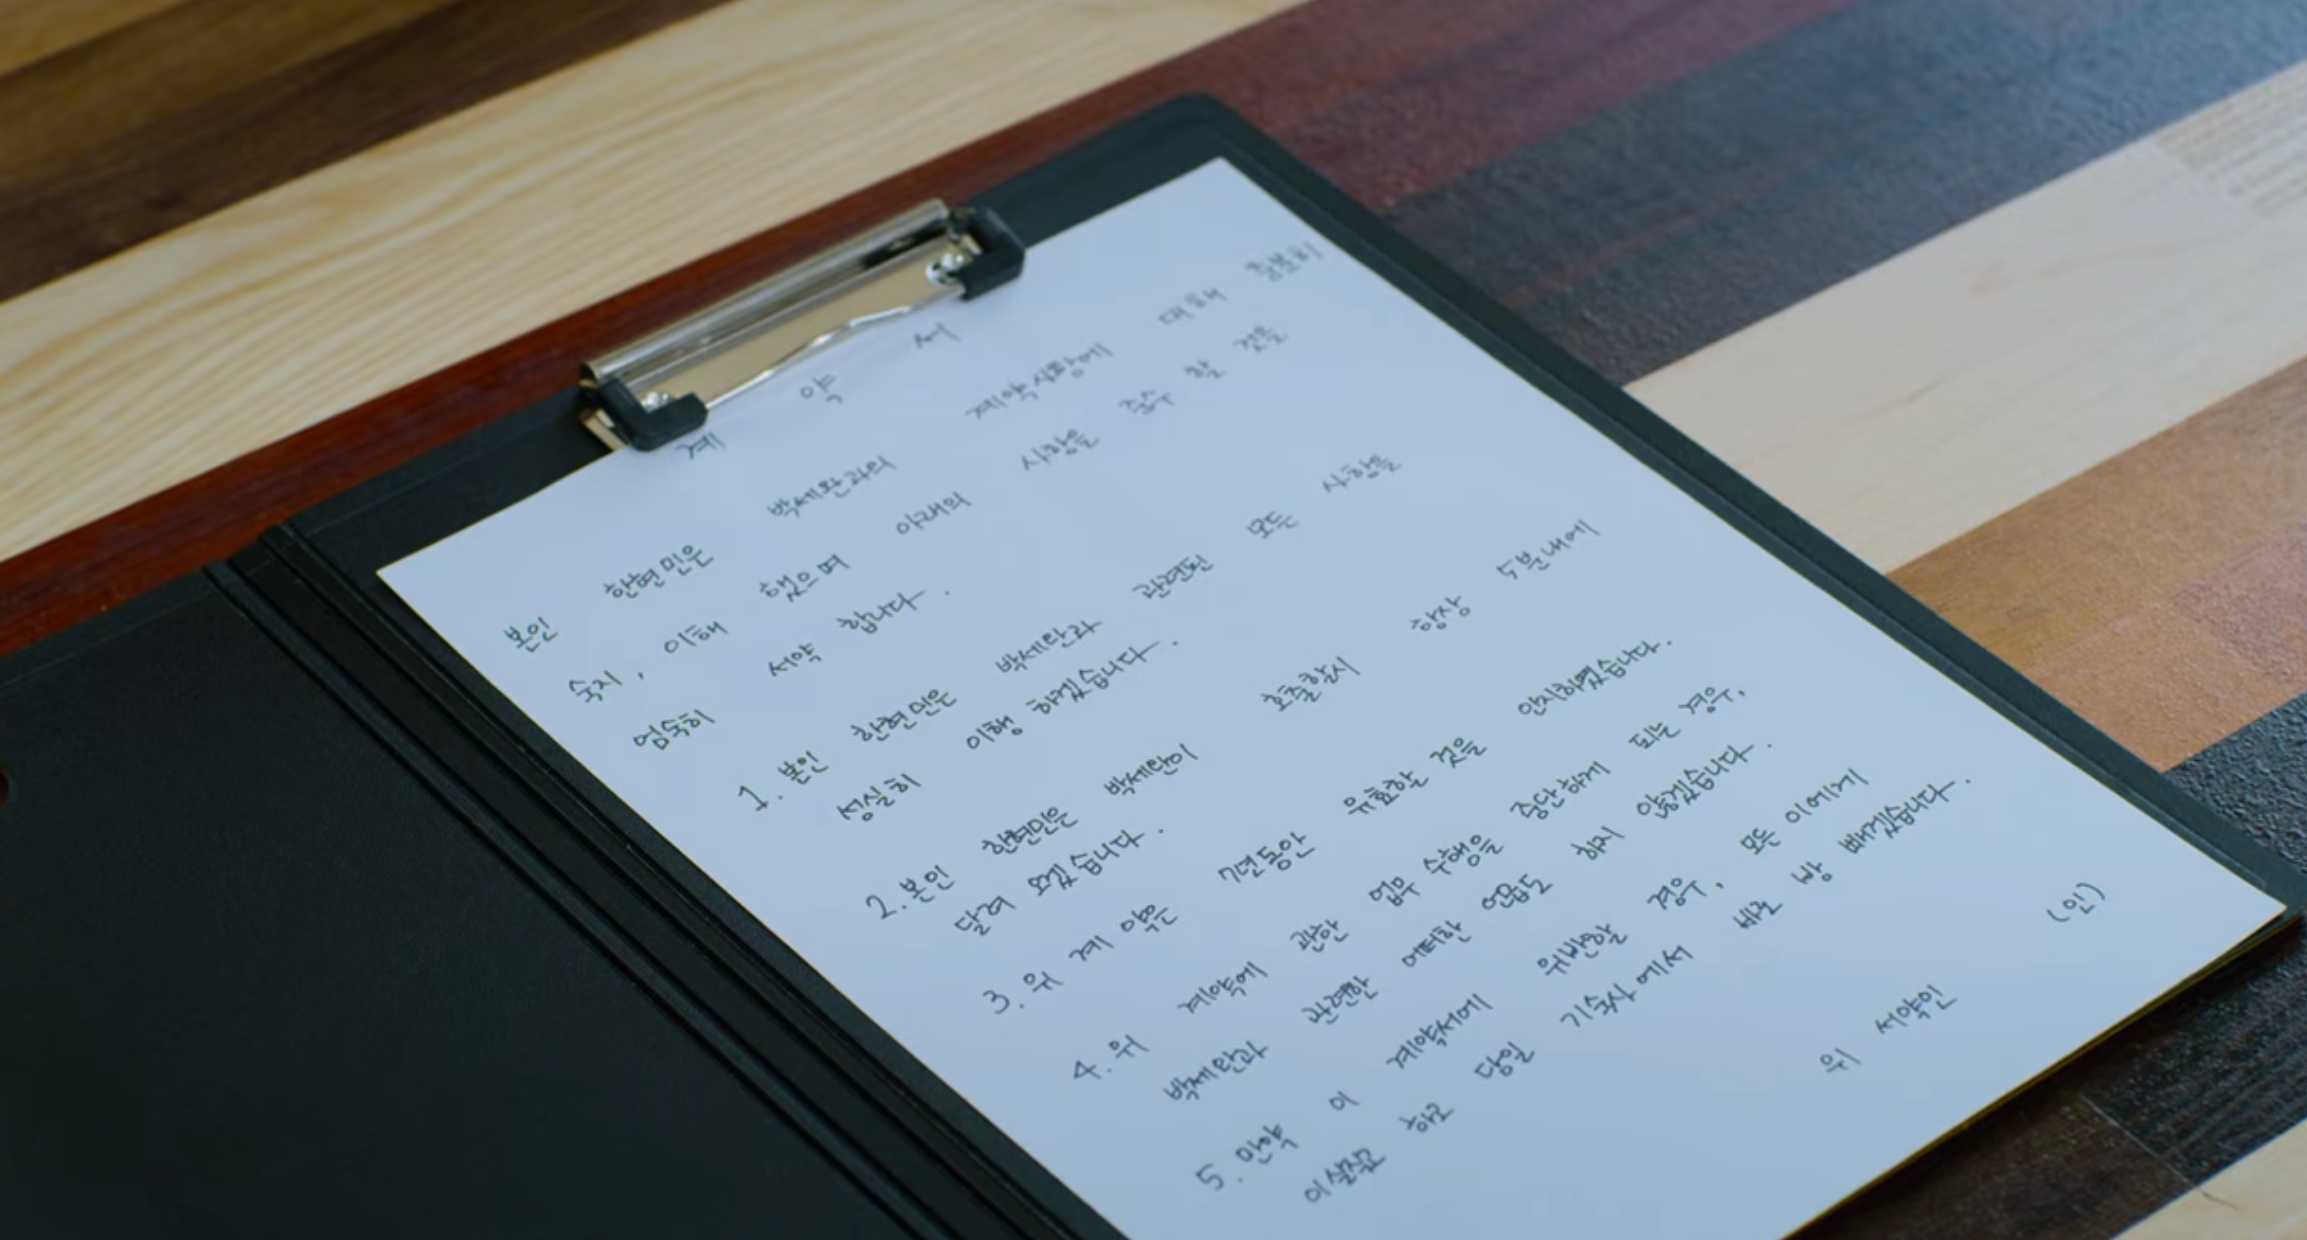 계 약 서
본인 한현민은 박세완과의 계약사항에 대해 충분히
숙지, 이해 했으며 아래의 사항을 준수 할 것을
엄숙히 서약 합니다.
1. 본인 한현민은 박세완과 관련된 모든 사항을
성실히 이행 하겠습니다.
2. 본인 한현민은 박세완이 호출할시 항상 5분내에
달려 오겠습니다.
3. 위 계약은 7년동안 유효한 것을 인지하였습니다.
4. 위 계약에 관한 업무 수행을 중단하게 되는 경우,
박세완과 관련한 어떠한 언급도 하지 않겠습니다.
5. 만약 이 계약서에 위반할 경우, 모든 이에게
이실직고 하고 당일 기숙사에서 바로 방 빼겠습니다.
위 서약인 (인)